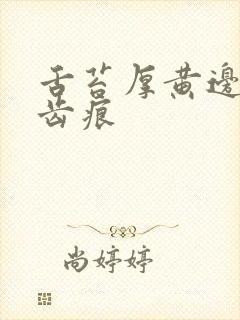 舌苔厚黄邊
齿痕
尚婷婷